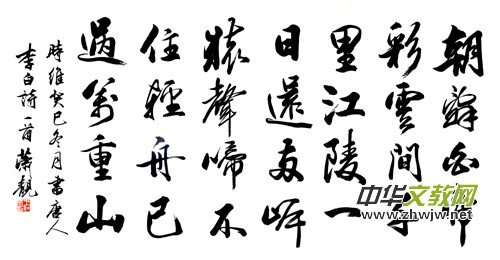 朝辭白帝
彩雲間千
里江陵一
日還兩岸
猿聲啼不
住輕舟已
過萬重山
時維癸巳冬月書唐人
李白詩一首
中华文教网
www.zhwjw.net